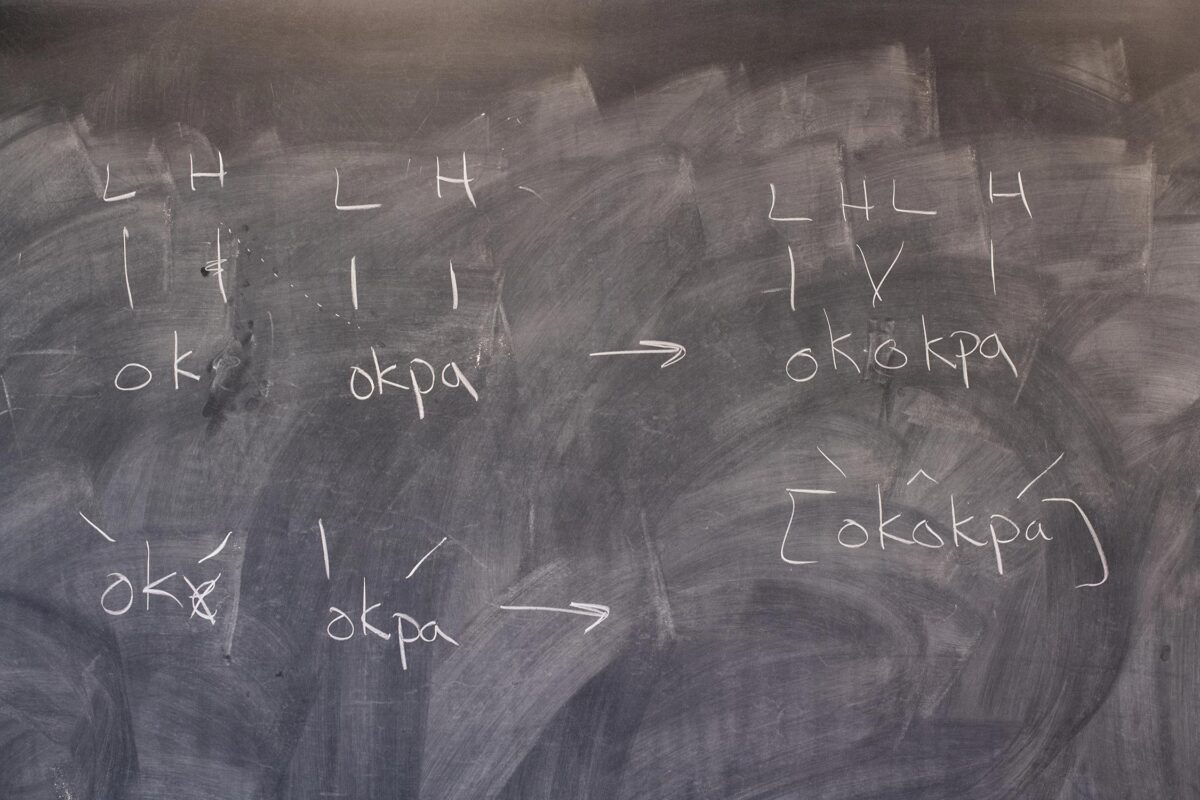 L H L H L H L H
ok okpa → okokpa
òk òkpá → [òkôkpá]